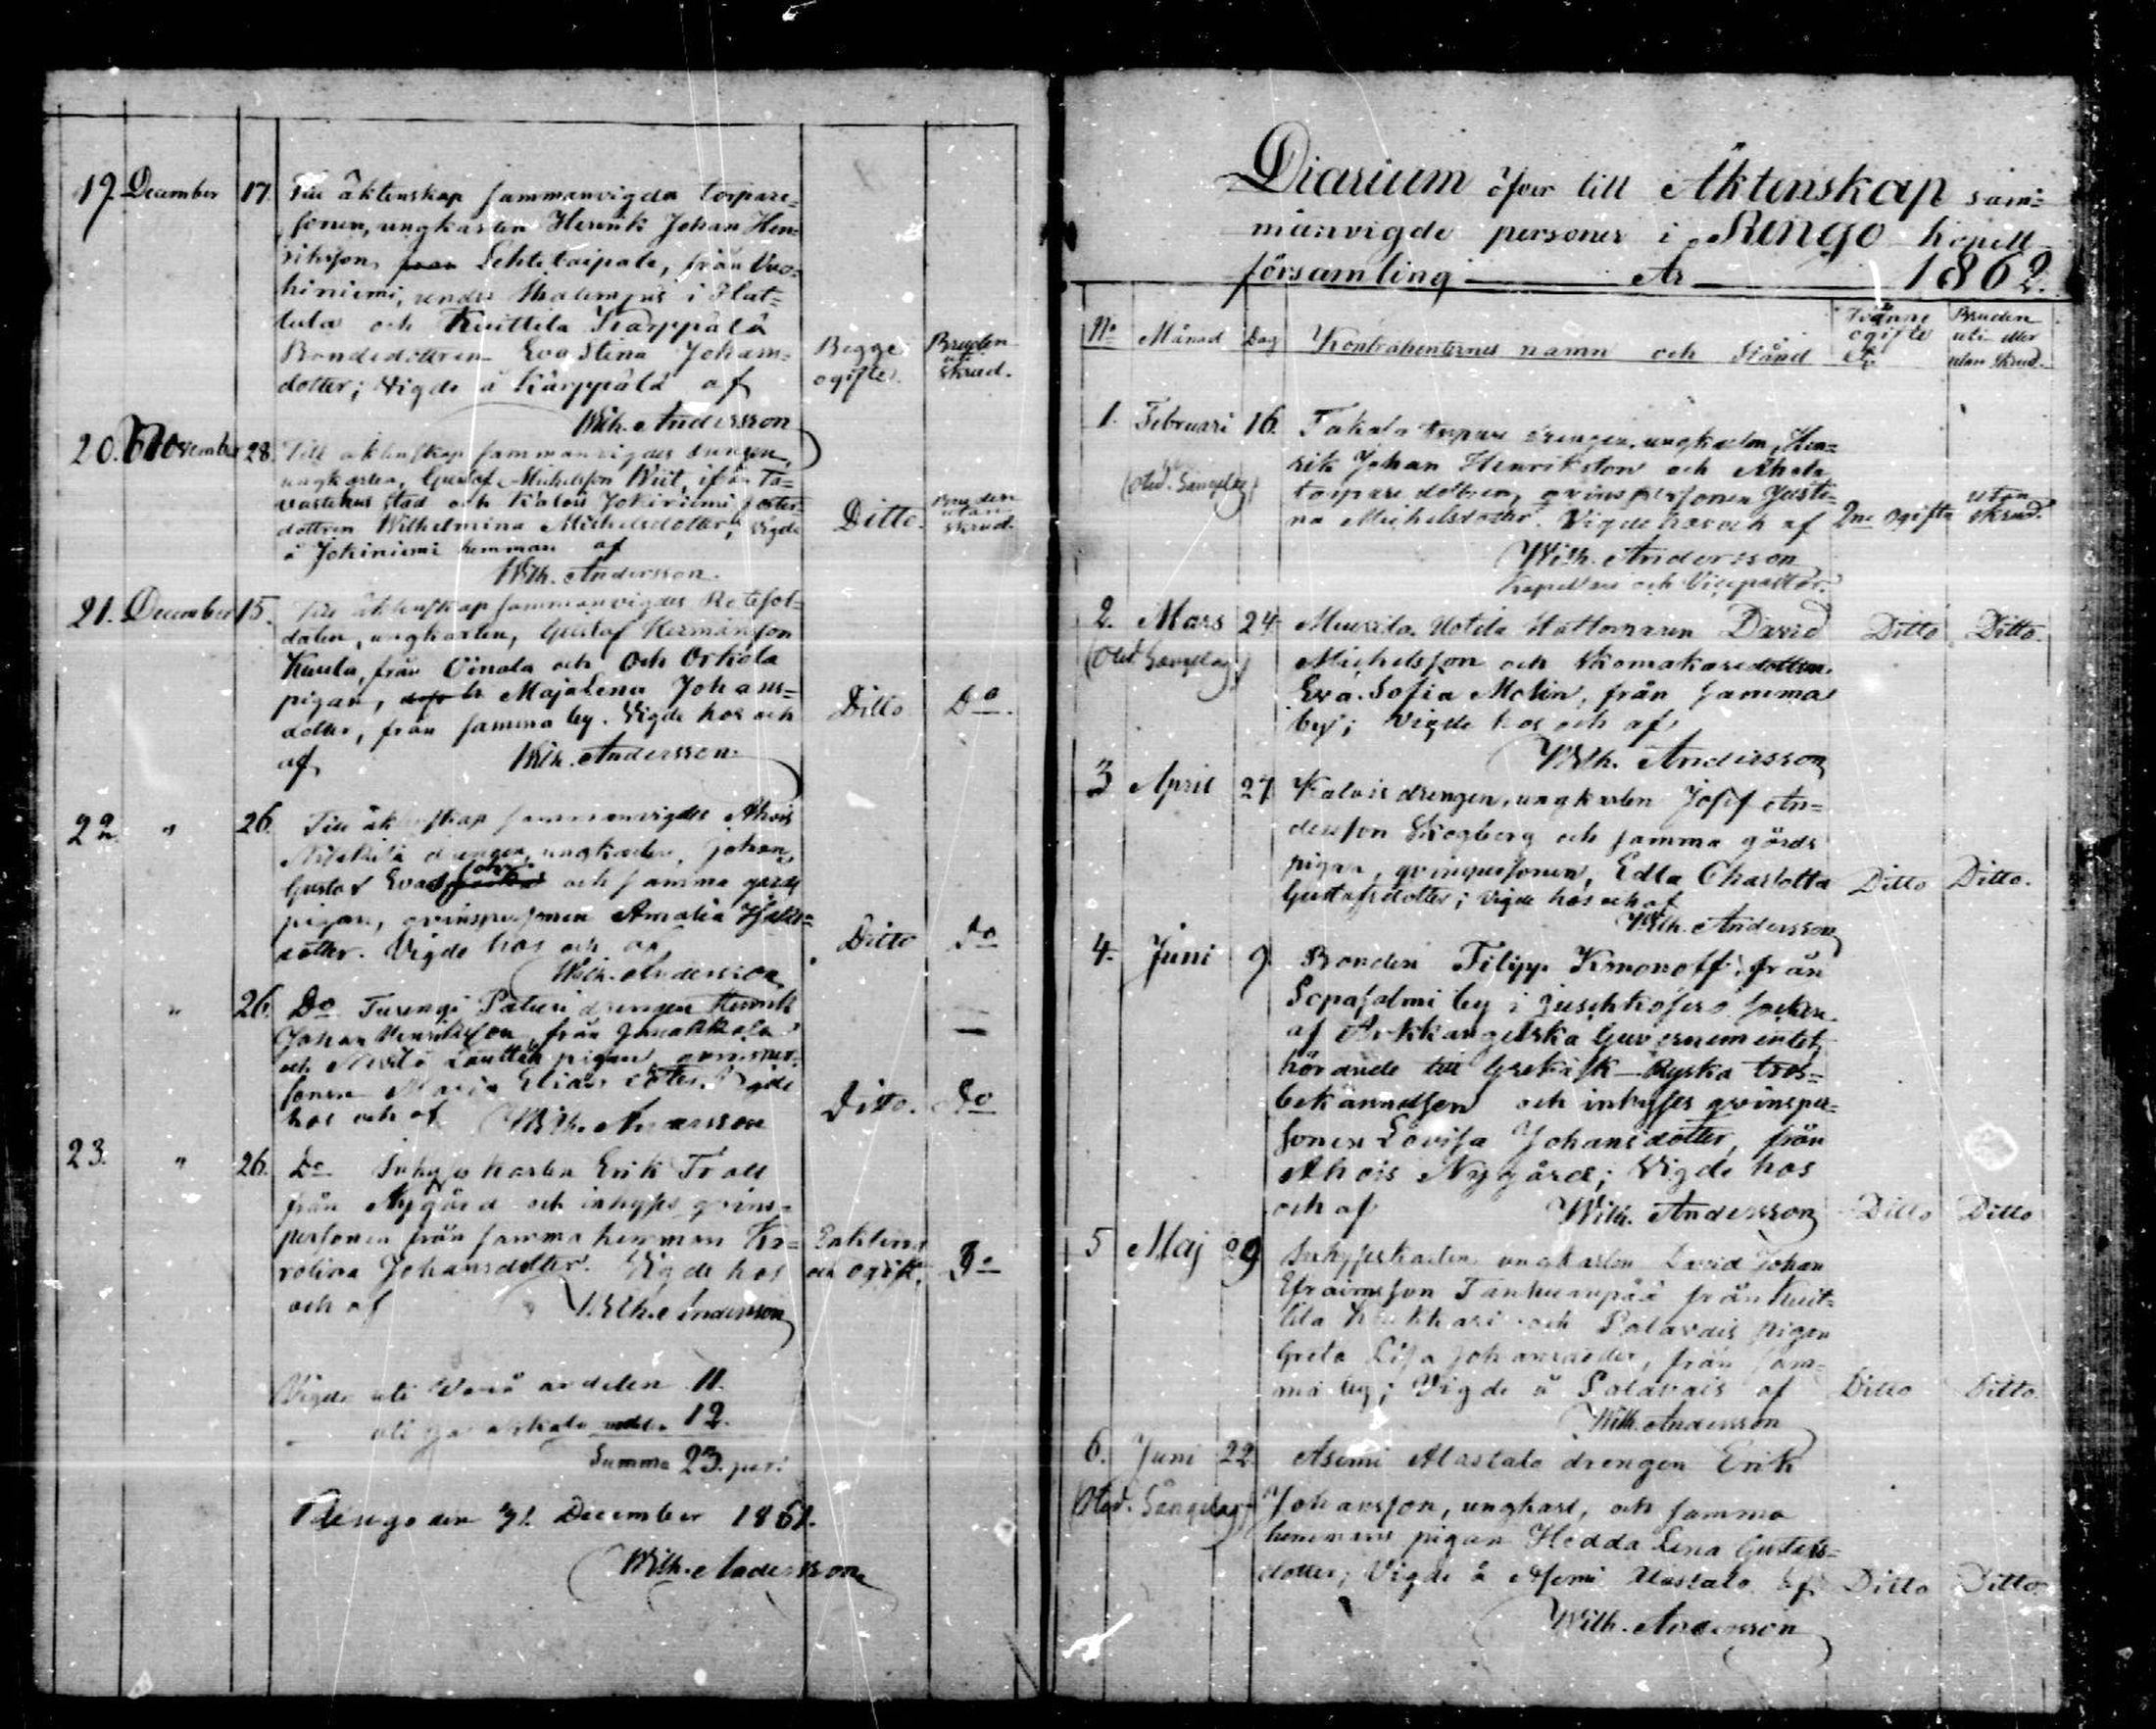 19. December 17. Till äktenskap sammanvigda torpare-
sonen, ungkarlen Henrik Johan Hen-
riksson från Lehtitaipale, från Vuo-
hiniemi, i Hat-
tula och Kuittila Karppälä
Bondedottren Eva Stina Johans- Begge Bruden
dotter; Vigde å Karppälä af ogifte. uti skrud.
Wilh. Andersson
20. November 28. Till äktenskap sammanvigdes drengen,
ungkarlen, Gustaf Michelsson Wiit, ifrån Ta-
vastehus stad och Kalois Jokiniemi foster-
dottren Wilhelmina Michelsdotter; vigde Ditto. Bruden utan skrud.
å Jokiniemi hemman af
Wilh. Andersson.
21. December 15. Till äktenskap sammanvigdes Rotesol-
daten, ungkarlen, Gustaf Hermansson
Kuula, från Oinala och Och Orkola
pigan, Maja Lena Johans-
dotter, från samma by. Vigde hos och Ditto Do.
af Wilh. Andersson.
22. " 26. Till äktenskap sammanvigdes Ahois
drengen, ungkarlen, Johan
Gustaf och samma gårds
pigan, qvinspersonen Amalia
dotter. Vigde hos och af Ditto Do
Wilh. Andersson
" 26. Do Turengi drengen Henrik
Johan Henriksson, från Janakkala
och pigan, qvinsper-
sonen Maria Elias dotter. Vigde
hos och af Wilh. Andersson Ditto. Do
23. " 26. Do Inhyses karlen Erik Trall
från Nygård och inhyses qvins-
personen från samma hemman Ka- Enkling
rolina Johansdotter. Vigde hos och ogift. Do
och af Wilh. Andersson
Vigde uti andelen 11.
uti 12.
Summa 23. par.
Rengo den 31. December 1861.
Wilh. Andersson
Diarium öfver till Äktenskap sam-
manvigde personer i Rengo kapell-
församling År 1862.
No Månad Dag Kontrahenternes namn och stånd Tvänne ogifte Bruden uti eller utan skrud.
1. Februari 16. Takala torpare drengen, ungkarlen, Hen-
rik Johan Henriksson och Ahola
torpare dottren, qvinspersonen Justi-
na Michelsdotter. Vigde hos och af 2ne Ogifta utan skrud.
Wilh. Andersson
Kapellan och Vicepastor.
2. Mars 24 Muurila Uotila David Ditto Ditto.
Michelsson och Skomakaredottren
Eva Sofia Molin, från samma
by; Vigde hos och af
Wilh. Andersson
3 April 27. Kalois drengen, ungkarlen Josef An-
dersson Skogberg och samma gårds
pigan, qvinspersonen, Edla Charlotta Ditto Ditto.
Gustafsdotter; vigde hos och af
Wilh. Andersson
4. Juni 9. Bonden Filipp Kononoff från
Sopasalmi by i socken
af Arkkangelska Guvernementet,
hörande till Grekisk-Ryska tros-
bekännelsen och inhyses qvinsper-
sonen Lovisa Johansdotter, från
Ahois Nygård; Vigde hos
och af Wilh. Andersson Ditto Ditto
5 Maj 29 Inhyseskarlen ungkarlen David Johan
Efraimsson Tanhuanpää från Kuit-
tila och Palavais pigan
Greta Lisa Johansdotter, från sam-
ma by; Vigde å Palavais af Ditto Ditto.
Wilh. Andersson
6. Juni 22. Asemi Alastalo drengen Erik
Johansson, ungkarl, och samma
hemmans pigan Hedda Lena Gustafs-
dotter; Vigde å Asemi Alastalo af Ditto Ditto.
Wilh. Andersson